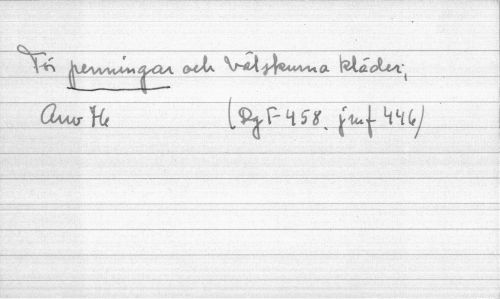 För penningar och välskurna kläder;
Arw He (Dg F 458. jmf 446)